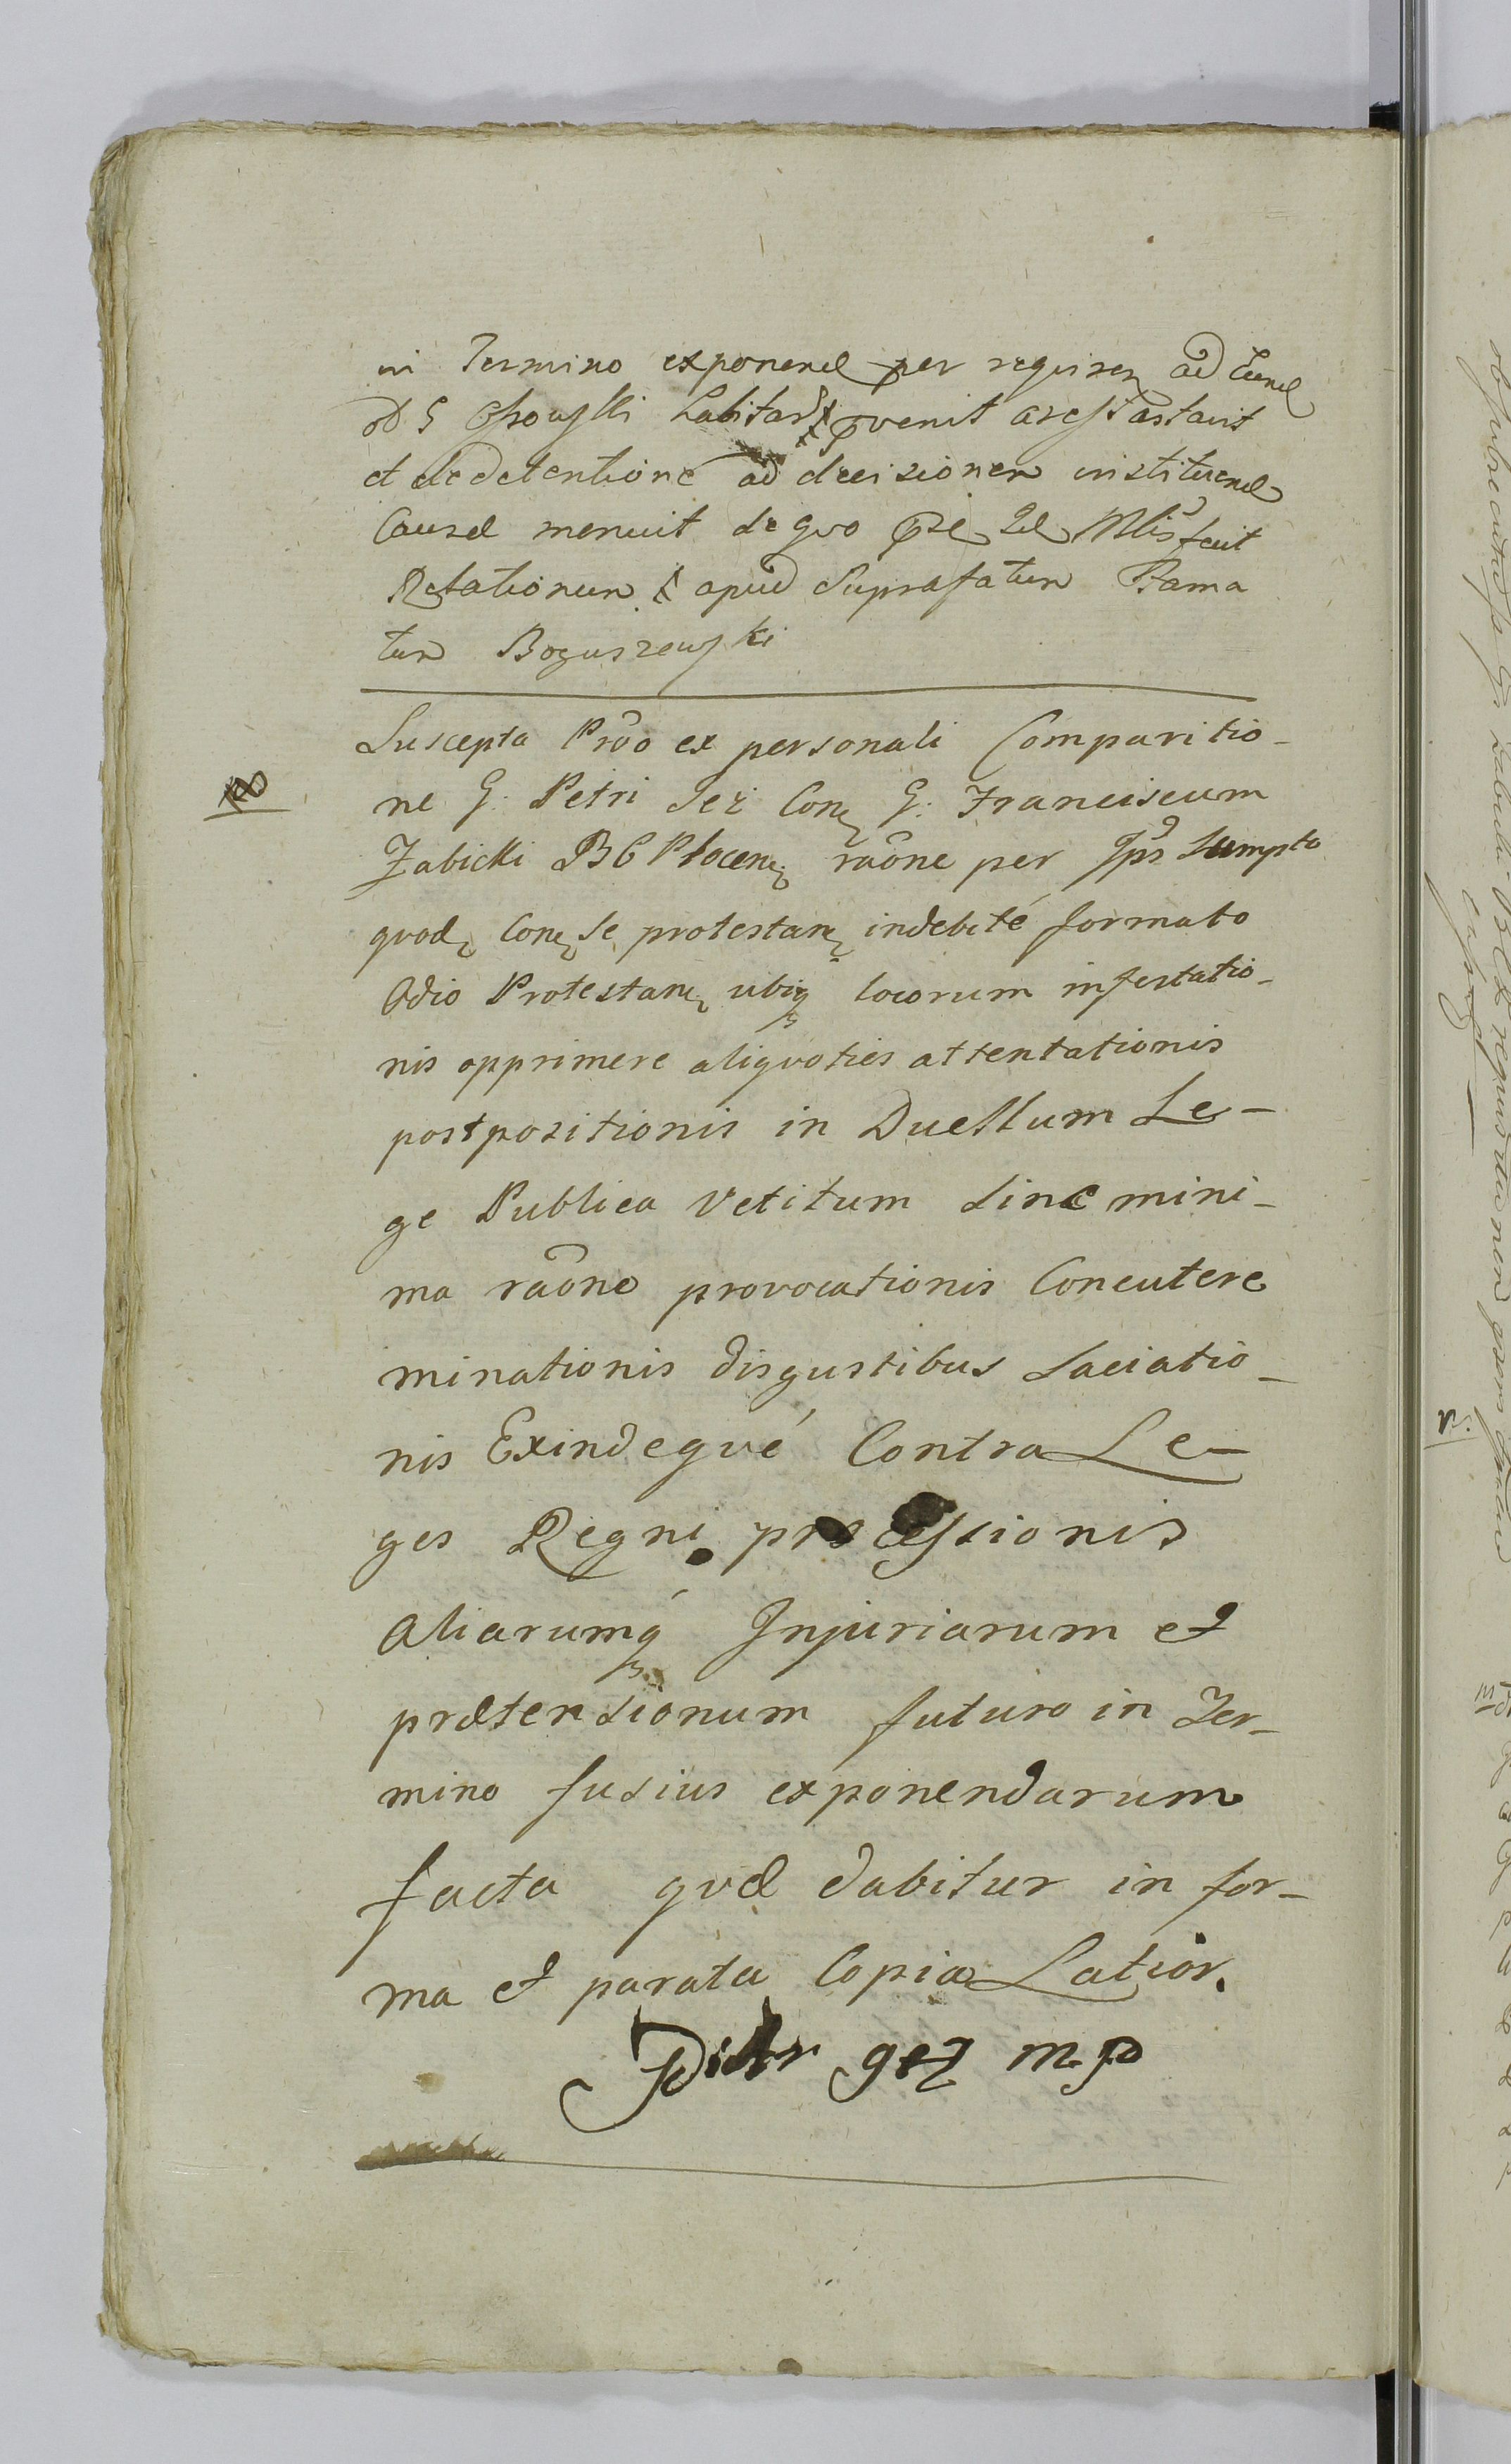 in Termino exponend per requiren ad Eund
et dedetentione ad decisionem instituend
Causæ menuit de quo
Relationem apud Suprafatum Fama
tum Boguszewski
Suscepta Prõo ex personali Comparitio-
ne G. Petri Jeż Con G. Franciscum
Żabicki B C Plocen raõne per Ips Sumpto
quod Con se protestan indebité formato
Odio Protestan ubiq locorum infestatio-
nis opprimere aliquoties attentationis
postpositionis in Duellum Le-
ge Publica Vetitum Sine mini-
ma raõne provocationis Concutere
minationis disgustibus Saciatio-
nis Exindequé Contra Le-
ges Regni processionis
Aliarumq Injuriarum et
prætensionum futuro in Ter-
mino fusius exponendarum
facta quæ dabitur in for-
ma et parata Copia Latior.
Piotr geż mp